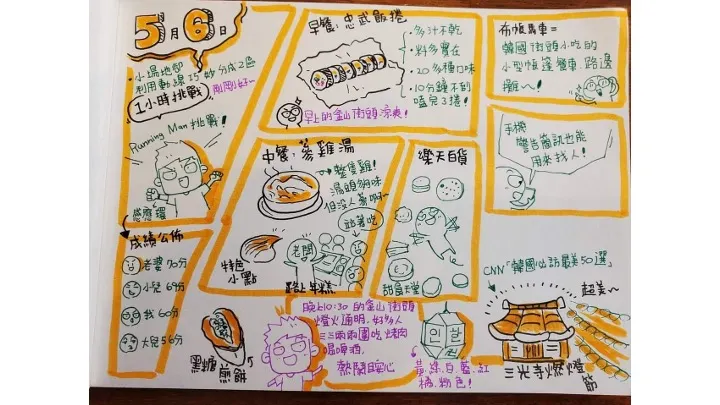 5月6日
・小場地卻
利用動線15秒分成2區
剛剛好~
1小時挑戰
Running Man 挑戰!
感應環
成績公佈
老婆70分
小兒69分
我60分
大兒56分
早餐:忠武飯捲
・多汁不乾
・料多實在
・20多種口味
・10分鐘不到
嗑完3捲!
早上的釜山街頭涼爽!
布帳馬車=
韓國街頭小吃的
小型帳篷餐車、路邊
攤~!
手機
警告簡訊也能
用來找人!
中餐:蔘雞湯
整隻雞!
湯頭夠味
但沒人蔘啊~
站著吃
老闆
特色
小點
路上年糕
樂天百貨
甜食天堂
黑糖煎餅
晚上10:30的釜山街頭
燈火通明,好多人
三三兩兩圍吃烤肉
喝啤酒,
熱鬧暖心
黃.綠.白.藍.紅
橘.粉色!
CNN「韓國必訪最美50選」
超美~
三光寺燃燈
節